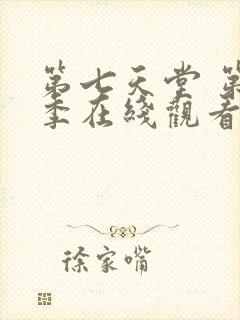 第七天堂 第
季在綫觀看
徐家嘴